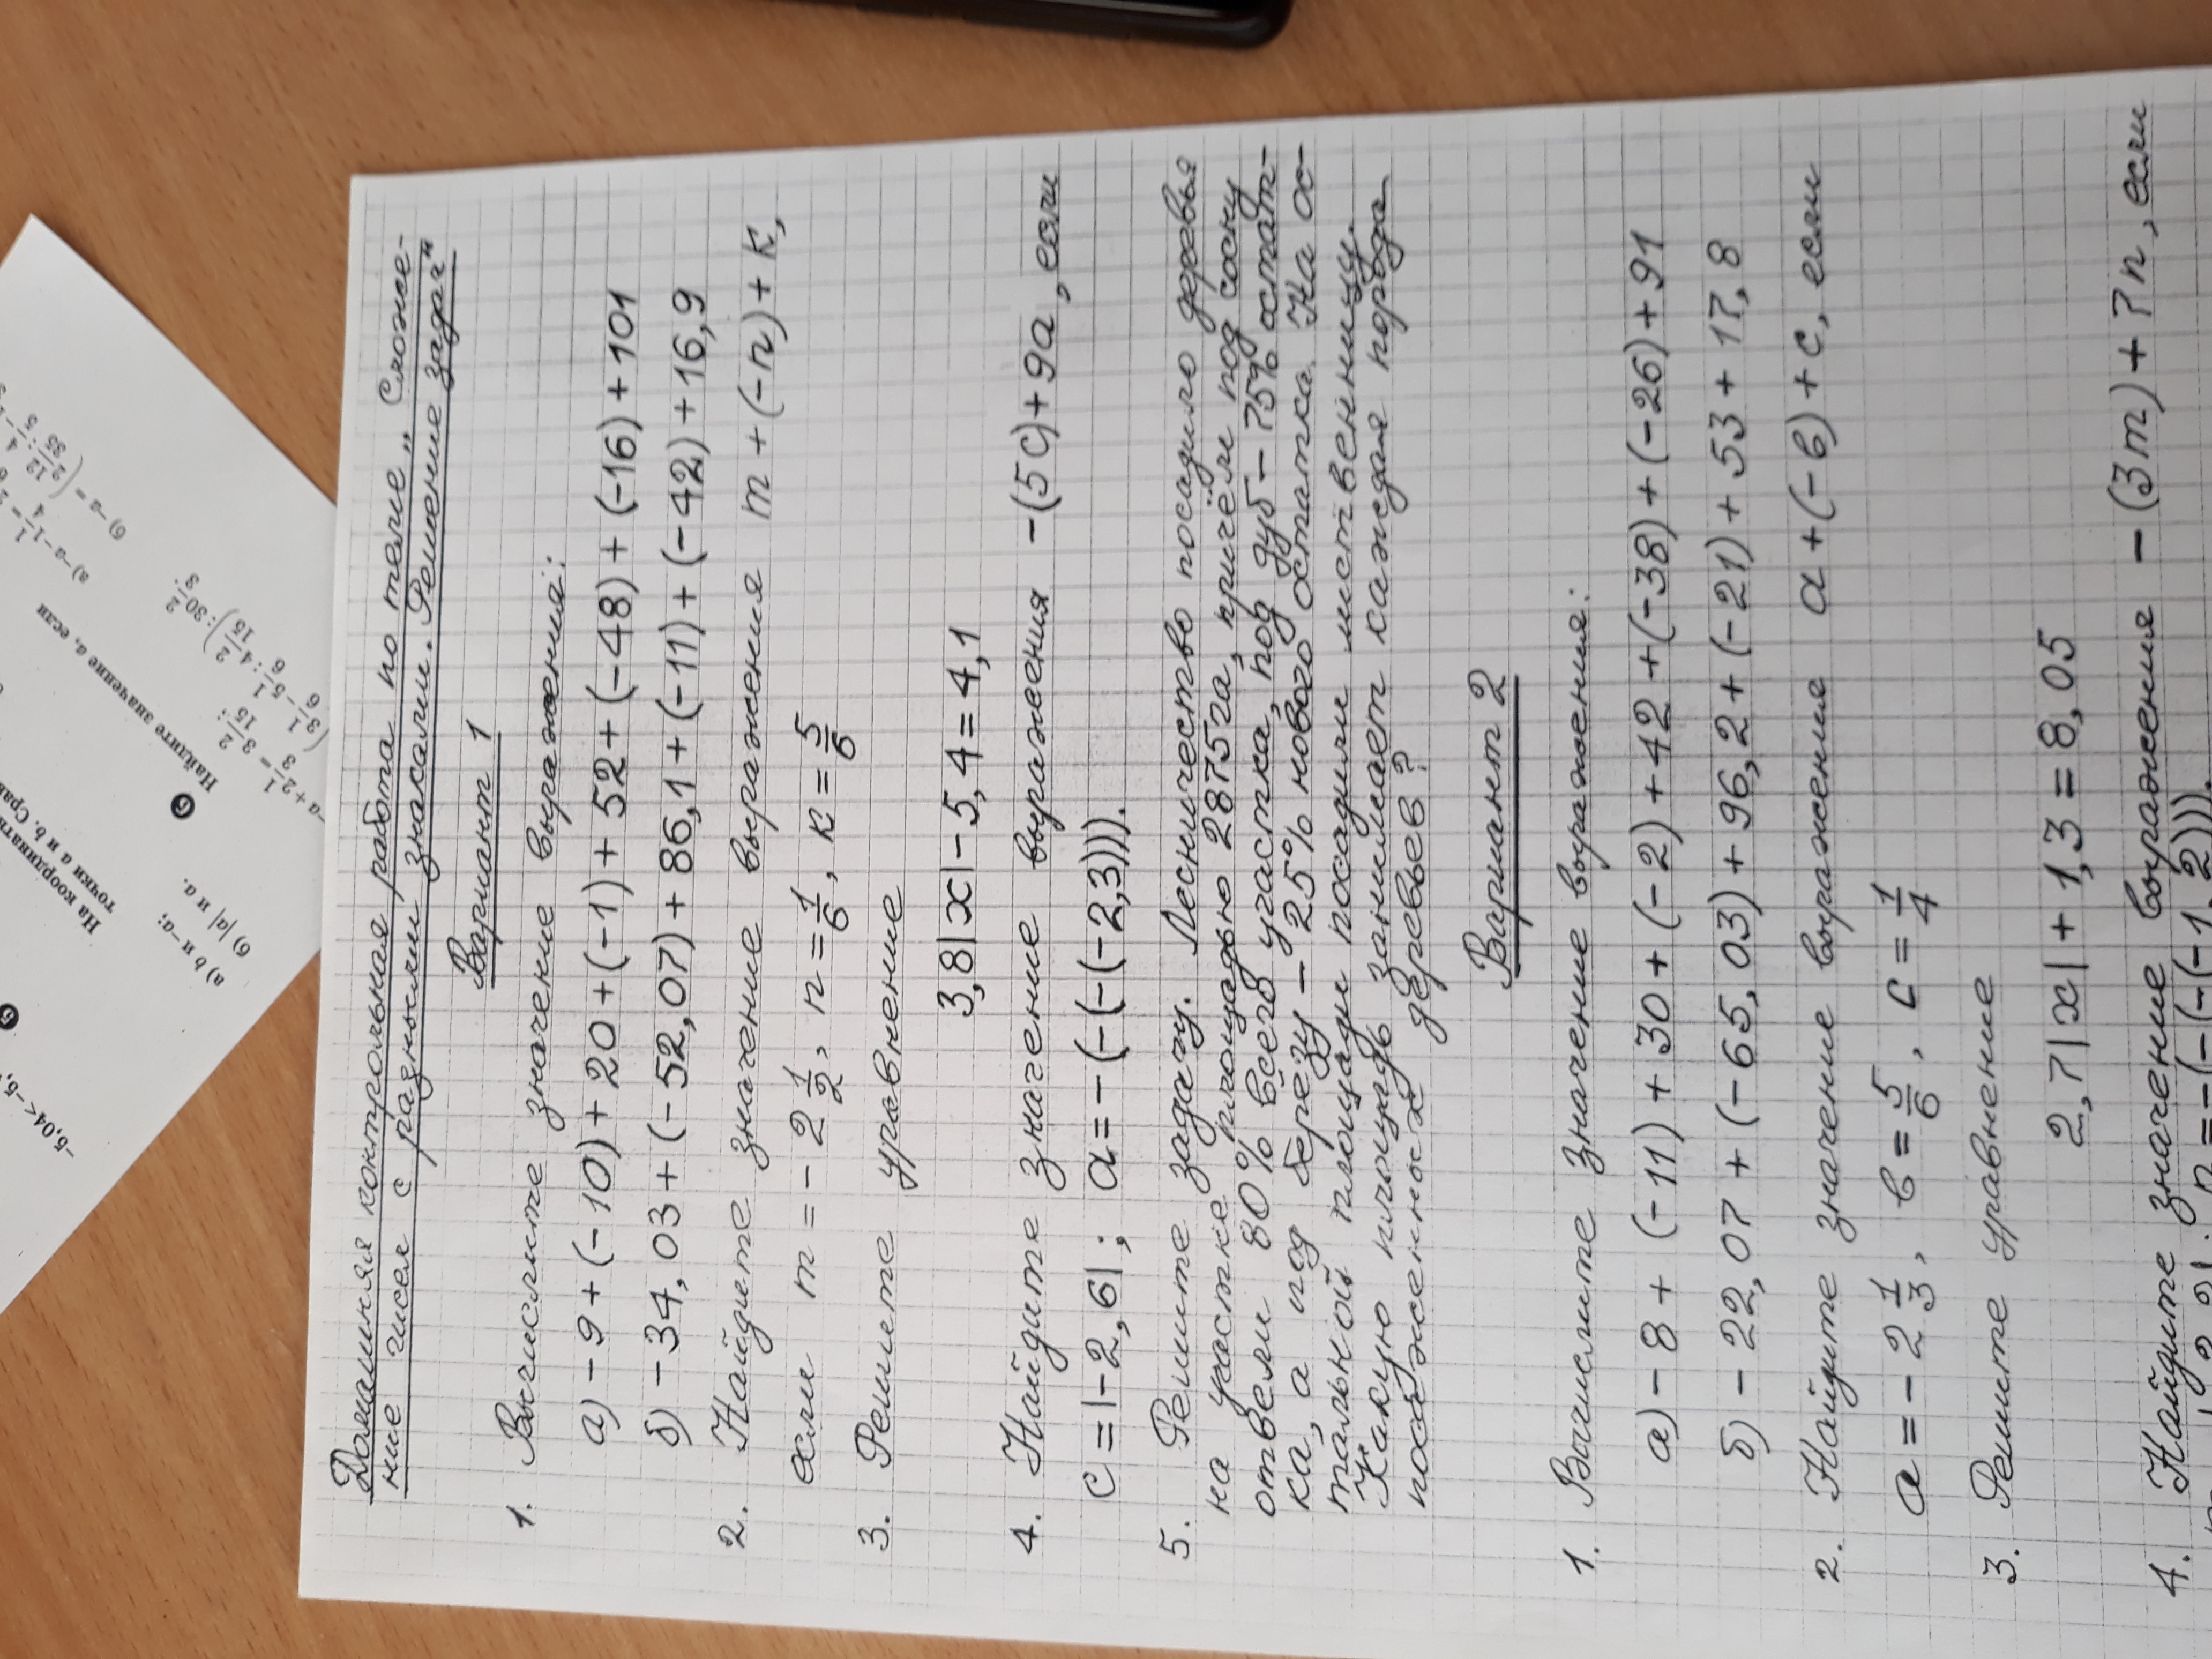 Домашняя контрольная работа по теме „Сложе-
ние чисел с разными знаками. Решение задач"
Вариант 1
1. Вычислите значение выражения:
а) -9+(-10)+20+(-1)+52+(-48)+(-16)+101
б) -34,03+(-52,07)+86,1+(-11)+(-42)+16,9
2. Найдите значение выражения m+(-n)+к,
если m=-2 1/2, n=1/6, к=5/6
3. Решите уравнение
3,8|x|-5,4=4,1
4. Найдите значение выражения -(5c)+9a, если
c=|-2,6|; a=-(-(-(-2,3))).
5. Решите задачу. Лесничество посадило деревья
на участке площадью 2875га, причём под сосну
отвели 80% всего участка, под дуб - 75% остат-
ка, а под березу - 25% нового остатка. На ос-
тальной площади посадили лиственницу.
Какую площадь занимает каждая порода
посаженных деревьев?
Вариант 2
1. Вычислите значение выражения:
а) -8+(-11)+30+(-2)+42+(-38)+(-26)+91
б) -22,07+(-65,03)+96,2+(-21)+53+17,8
2. Найдите значение выражения a+(-в)+c, если
a=-2 1/3, в=5/6, c=1/4
3. Решите уравнение
2,7|x|+1,3=8,05
4. Найдите значение выражения -(3m)+7n, если
n=-(-(-(-1,2))).
-5,04<-5,
На координатн
точки a и b. Срав
а) b и -a;
б) |a| и a.
6 Найдите значение a, если
а) -a-1 1/4
б) -a=